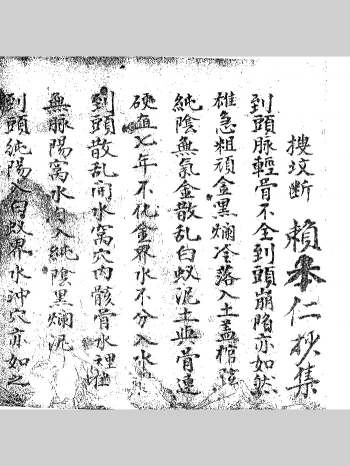 賴布仁抄集
搜坟断
到頭脉輕骨不全到頭崩陷亦如然
雄急粗頑金黑爛冷落入土盖棺
純陰無氣金散乱白蚁泥土與骨連
硬直七年不化金界水不分入水
到頭散乱闲水窩穴内骸骨水裡
無脉陽窩水自入純陰黑爛泥
到頭純陽入白蚁界水冲穴亦如之